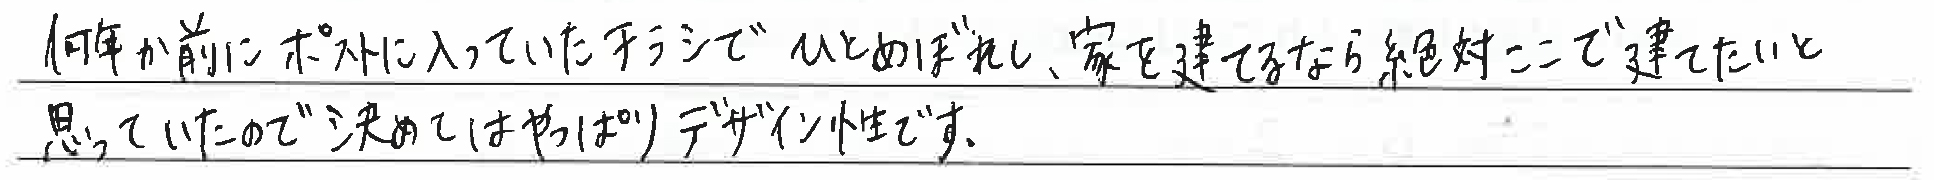 何年か前にポストに入っていたチラシでひとめぼれし、家を建てるなら絶対ここで建てたいと
思っていたので決めてはやっぱりデザイン性です。